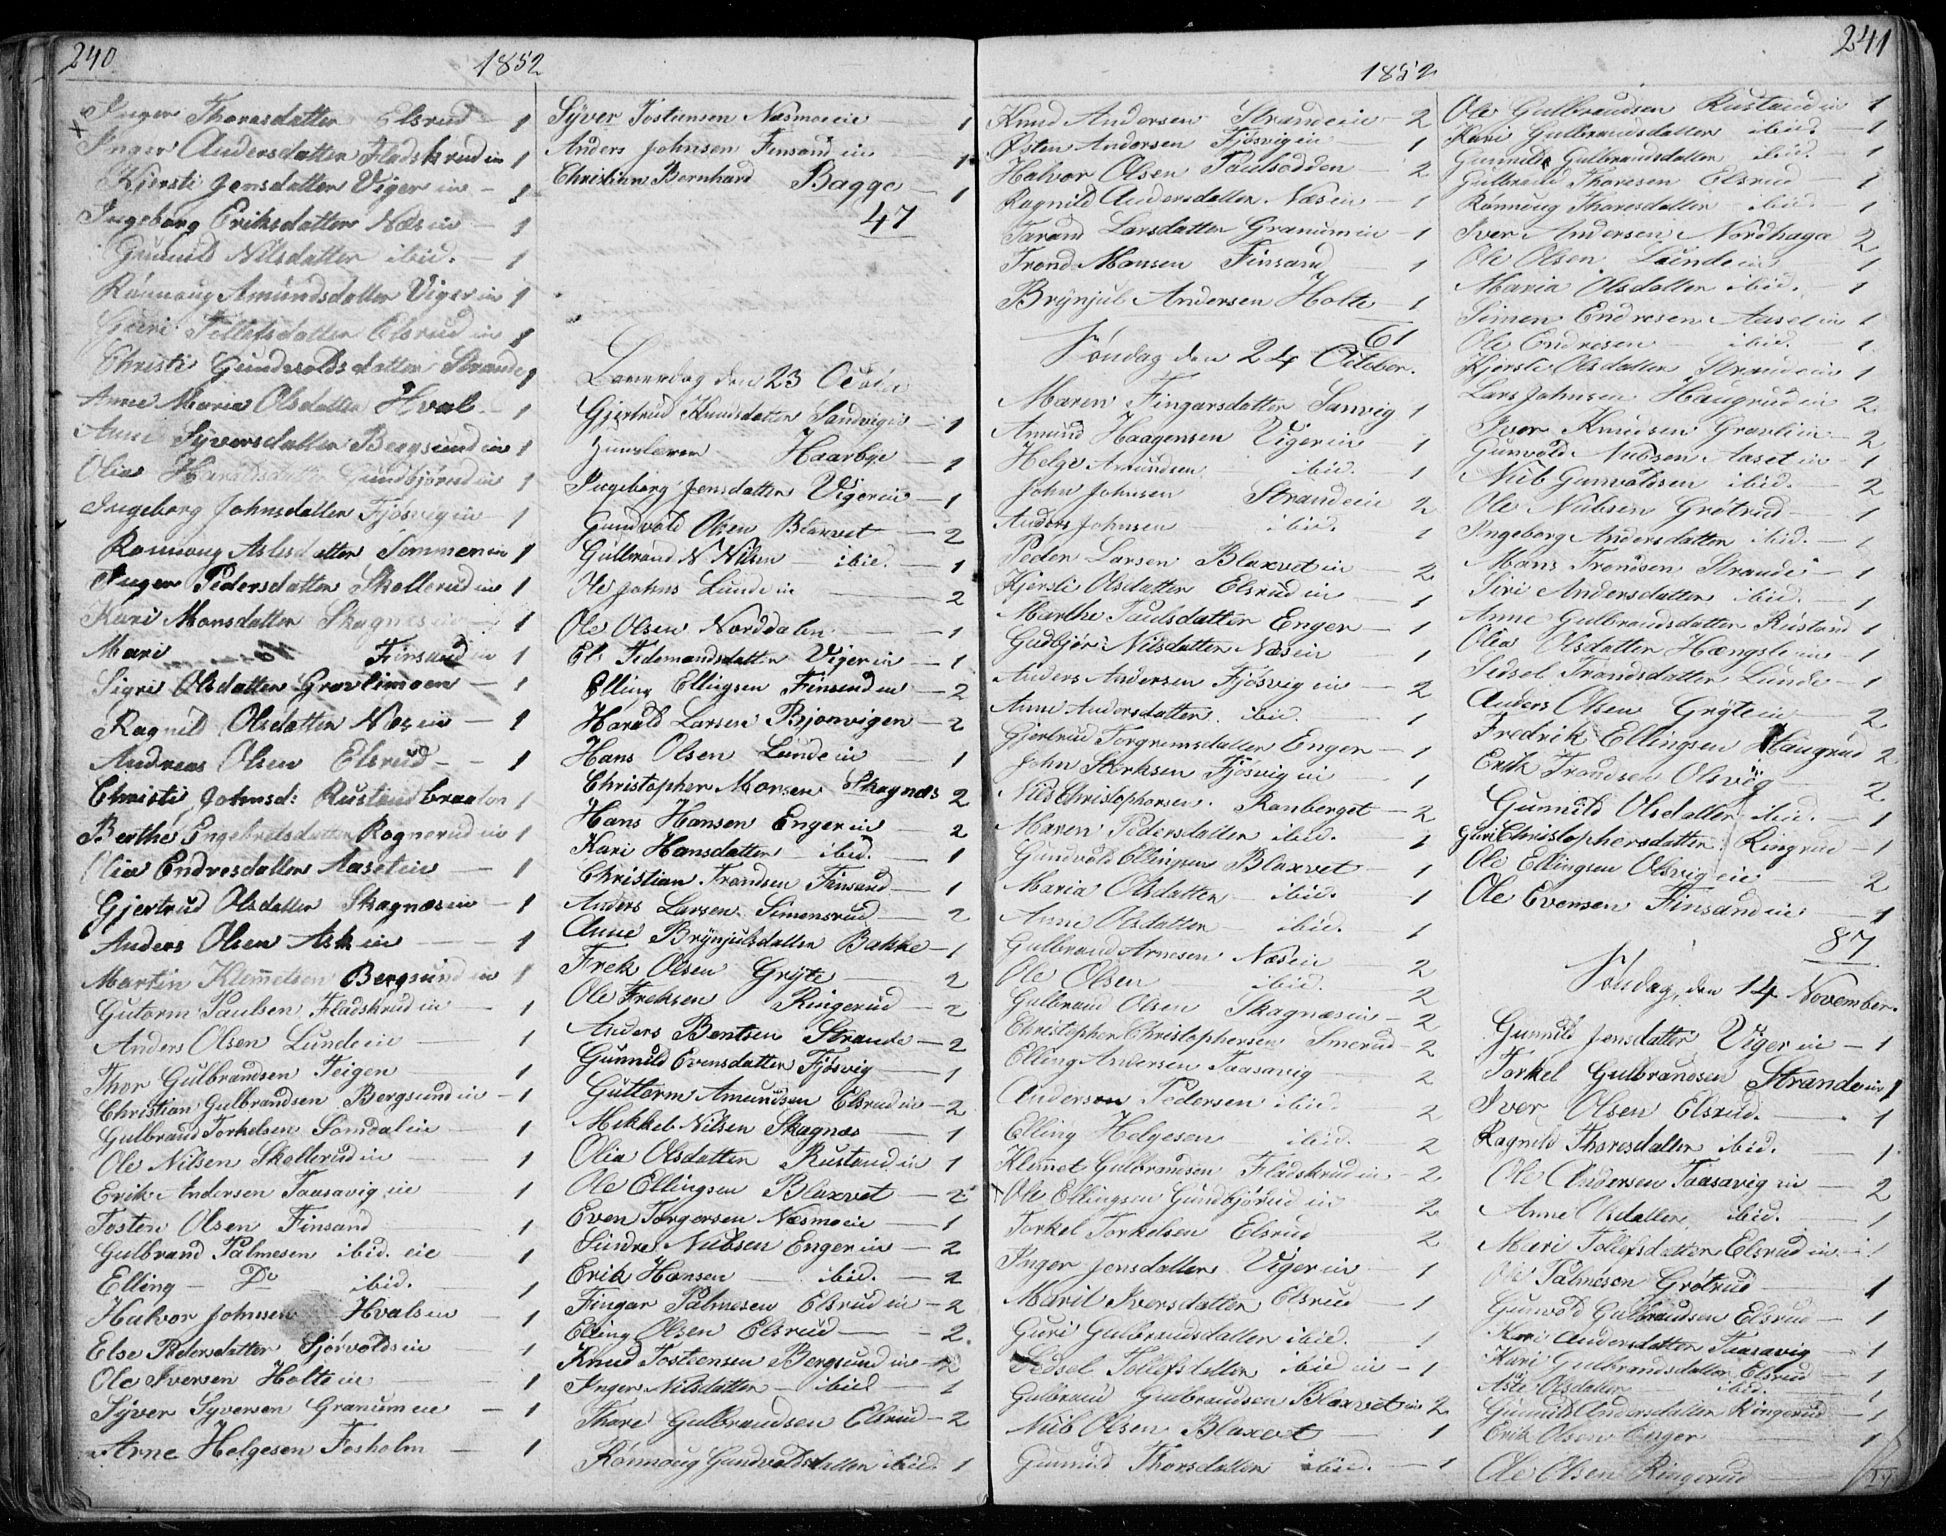 240
1852
Inger Thoresdatter Elsrud — 1
Inger Andersdatter Fladskrud ie 1
Kjersti Jensdatter Viger ie — 1
Ingeborg Eriksdatter Næs ie — 1
Gunnild Nilsdatter ibid. — 1
Rönnoug Amundsdatter Viger ie 1
Guri Tollefsdatter Elsrud ie 1
Christi Gundvoldsdatter Strande 1
Anne Maria Olsdatter Hval 1
Anne Syversdatter Bergsund ie 1
Olia Haraldsdatter Gundbjörud ie 1
Ingeborg Johnsdatter Fjösvig ie — 1
Rønnoug Aslesdatter Sommeren ie 1
Inger Pedersdatter Skollerud ie 1
Kari Monsdatter Skagnæs ie 1
Mari Finsand ie 1
Sigri Olsdatter Gravlimoen — 1
Ragnild Olsdatter Næs ie — 1
Andreas Olsen Elsrud — 1
Christi Johnsd: Rustandbraaten 1
Berthe Engebretsdatter Rognerud ie 1
Olia Endresdatter Aaset ie — 1
Gjertrud Olsdatter Skagnæs ie — 1
Anders Olsen Ask ie — 1
Martin Klemmetsen Bergsund ie 1
Gutorm Paulsen Fladskrud ie — 1
Anders Olsen Lunde ie — 1
Thor Gulbrandsen Teigen 1
Christian Gulbrandsen Bergsund ie — 1
Gulbrand Torkelsen Somdal ie — 1
Ole Nilsen Skollerud ie — 1
Erik Andersen Taasavig ie — 1
Tosten Olsen Finsand — 1
Gulbrand Palmesen ibid. eie — 1
Elling — Do ibid. — 1
Halvor Johnsen Hvals ie — 1
Else Pedersdatter Sjörvolds ie 1
Ole Iversen Holte ie — 1
Syver Syversen Granum ie — 1
Arne Helgesen Fosholm — 1
Syver Tostensen Næsmoeie — 1
Anders Johnsen Finsand ie 1
Christian Bernhard Bagge — 1
47
Løverdag den 23 October
Gjertrud Knudsdatter Sandvig ie — 1
Haarbye — 1
Ingeborg Jensdatter Viger ie — 1
Gundvold Olsen Blaxvet — 2
Gulbrand N Nilsen — ibid. — 1
Ole Johns Lunde ie — 2
Ole Olsen Norddalen — 1
Els Tidemandsdatter Viger ie — 1
Elling Ellingsen Finsand ie — 2
Harald Larsen Bjonvigen — 2
Hans Olsen Lunde ie — 1
Christopher Monsen Skagnæs 2
Hans Hansen Enger ie 2
Kari Hansdatter — ibid. — 1
Christian Trondsen Finsand — 1
Anders Larsen Simensrud — 2
Anne Brynjulsdatter Bakke — 1
Frek Olsen Gryte — 2
Ole Freksen Ringerud — 2
Anders Bentsen Strande — 2
Gunnild Evensdatter Fjösvig — 1
Guttorm Amundsen Elsrud ie — 2
Mikkel Nilsen Skagnæs — 1
Olia Olsdatter Rustand ie 1
Ole Ellingsen Blaxvet — 2
Even Torgersen Næsmoeie — 1
Sindre Nubsen Enger ie — 2
Erik Hansen — ibid. — 2
Fingar Palmesen Elsrud ie — 2
Elling Olsen Elsrud — 2
Knud Tosteensen Bergsund ie — 2
Inger Nilsdatter — ibid — 1
Thore Gulbrandsen Elsrud — 2
Rönnoug Gundvoldsdatter ibid 1
241
1852
Knud Andersen Strande ie — 2
Østen Andersen Fjösvig ie 1
Halvor Olsen Paulsodden — 2
Ragnild Andersdatter Næs ie — 1
Tarand Larsdatter Granum ie — 1
Trond Monsen Finsand — 1
Brynjul Andersen Holte — 1
61
Søndag den 24 October.
Maren Fingarsdatter Sanvig 1
Amund Haagensen Viger ie — 1
Helge Amundsen ibid. 1
John Johnsen Strande ie 2
Anders Johnsen — ibid. 1
Peder Larsen Blaxvet ie — 2
Kjersti Olsdatter Elsrud ie — 1
Marthe Paulsdatter Enger — 1
Gudbjör Nilsdatter Næs ie 1
Anders Andersen Fjösvig ie — 2
Anne Andersdatter ibid. — 1
Gjertrud Torgrimsdatter Enger — 1
John Størksen Fjösvig ie 1
Nils Christophersen Ranberget — 2
Maren Pedersdatter ibid. — 1
Gundvold Ellingsen Blaxvet — 1
Maria Olsdatter — ibid. 1
Anne Olsdatter — ibid. 1
Gulbrand Arnesen Næs ie — 2
Ole Olsen — ibid. — 2
Gulbrand Olsen Skagnæs ie — 2
Christopher Christophersen Smerud — 2
Elling Andersen Taasavig — 2
Anderson Pedersen ibid. — 2
Elling Helgesen ibid. — 2
Klemet Gulbrandsen Fladskrud ie — 2
Ole Ellingsen Gundbjörud ie — 2
Torkel Torkelsen Elsrud 2
Inger Jensdatter Viger ie — 1
Marit Iversdatter Elsrud — 1
Guri Gulbrandsdatter ibid. 1
Sidsel Tollefsdatter ibid ie — 1
Gulbrand Gulbrandsen Blaxvet ie 2
Nub Olsen Blaxvet — 1
Gunnild Thorsdatter ibid. — 1
Ole Gulbrandsen Rustand ie 1
Kari Gulbrandsdatter ibid. — 1
Gunnild Gulbrandsdatter ibid. — 1
Gulbrand Thoresen Elsrud 1
Rönnoug Thoresdatter ibid — 1
Iver Andersen Nordhage 2
Ole Olsen Lunde ie 1
Maria Olsdatter ibid. — 1
Simen Endresen Aaset ie 1
Ole Endresen — ibid. 1
Kjersti Olsdatter Strande ie 1
Lars Johnsen Haugrud ie 2
Iver Knudsen Gravli ie — 2
Gunvold Nubsen Aaset ie — 1
Nub Gunvoldsen ibid. — 2
Ole Nubsen Grøtrud — 1
Ingeborg Andersdatter ibid. — 1
Mons Trondsen Strande — 1
Siri Andersdatter ibid. — 1
Anne Gulbrandsdatter Rustand 1
Olia Olsdatter Hængsle ie — 1
Sidsel Trondsdatter Lunde — 1
Anders Olsen Gryte ie — 2
Fredrik Ellingsen Haugrud 2
Erik Trondsen Olsvig — 2
Gunnild Olsdatter ibid. — 1
Guri Christophersdatter Ringrud — 1
Ole Ellingsen Olsvig eie — 2
Ole Evensen Finsand ie — 1
87
Søndag, den 14 November.
Gunnild Jensdatter Viger ie — 1
Torkel Gulbrandsen Strande ie 1
Iver Olsen Elsrud. — 1
Ragnild Thoresdatter ibid. — 1
Ole Andersen Taasavig ie — 2
Anne Olsdatter ibid. — 1
Mari Tollefsdatter Elsrud ie — 1
Ole Palmesen Grötrud — 1
Gunvold Gulbrandsen Elsrud — 1
Kari Andersdatter Taasavig — 1
Kari Gulbrandsdatter Elsrud — 1
Olsdatter — ibid. — 1
Gunnild Andersdatter Ringerud — 1
Erik Olsen Enger — 1
Ole Olsen Ringerud —